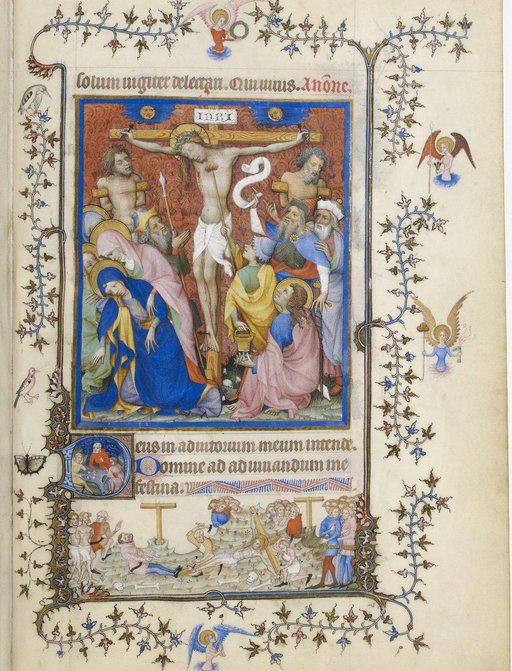 solum iugiter delectari. Qui uiuis. A nõne.
INRI
Deus in adiutorium meum intende.
Domine ad adiuuandum me
festina.